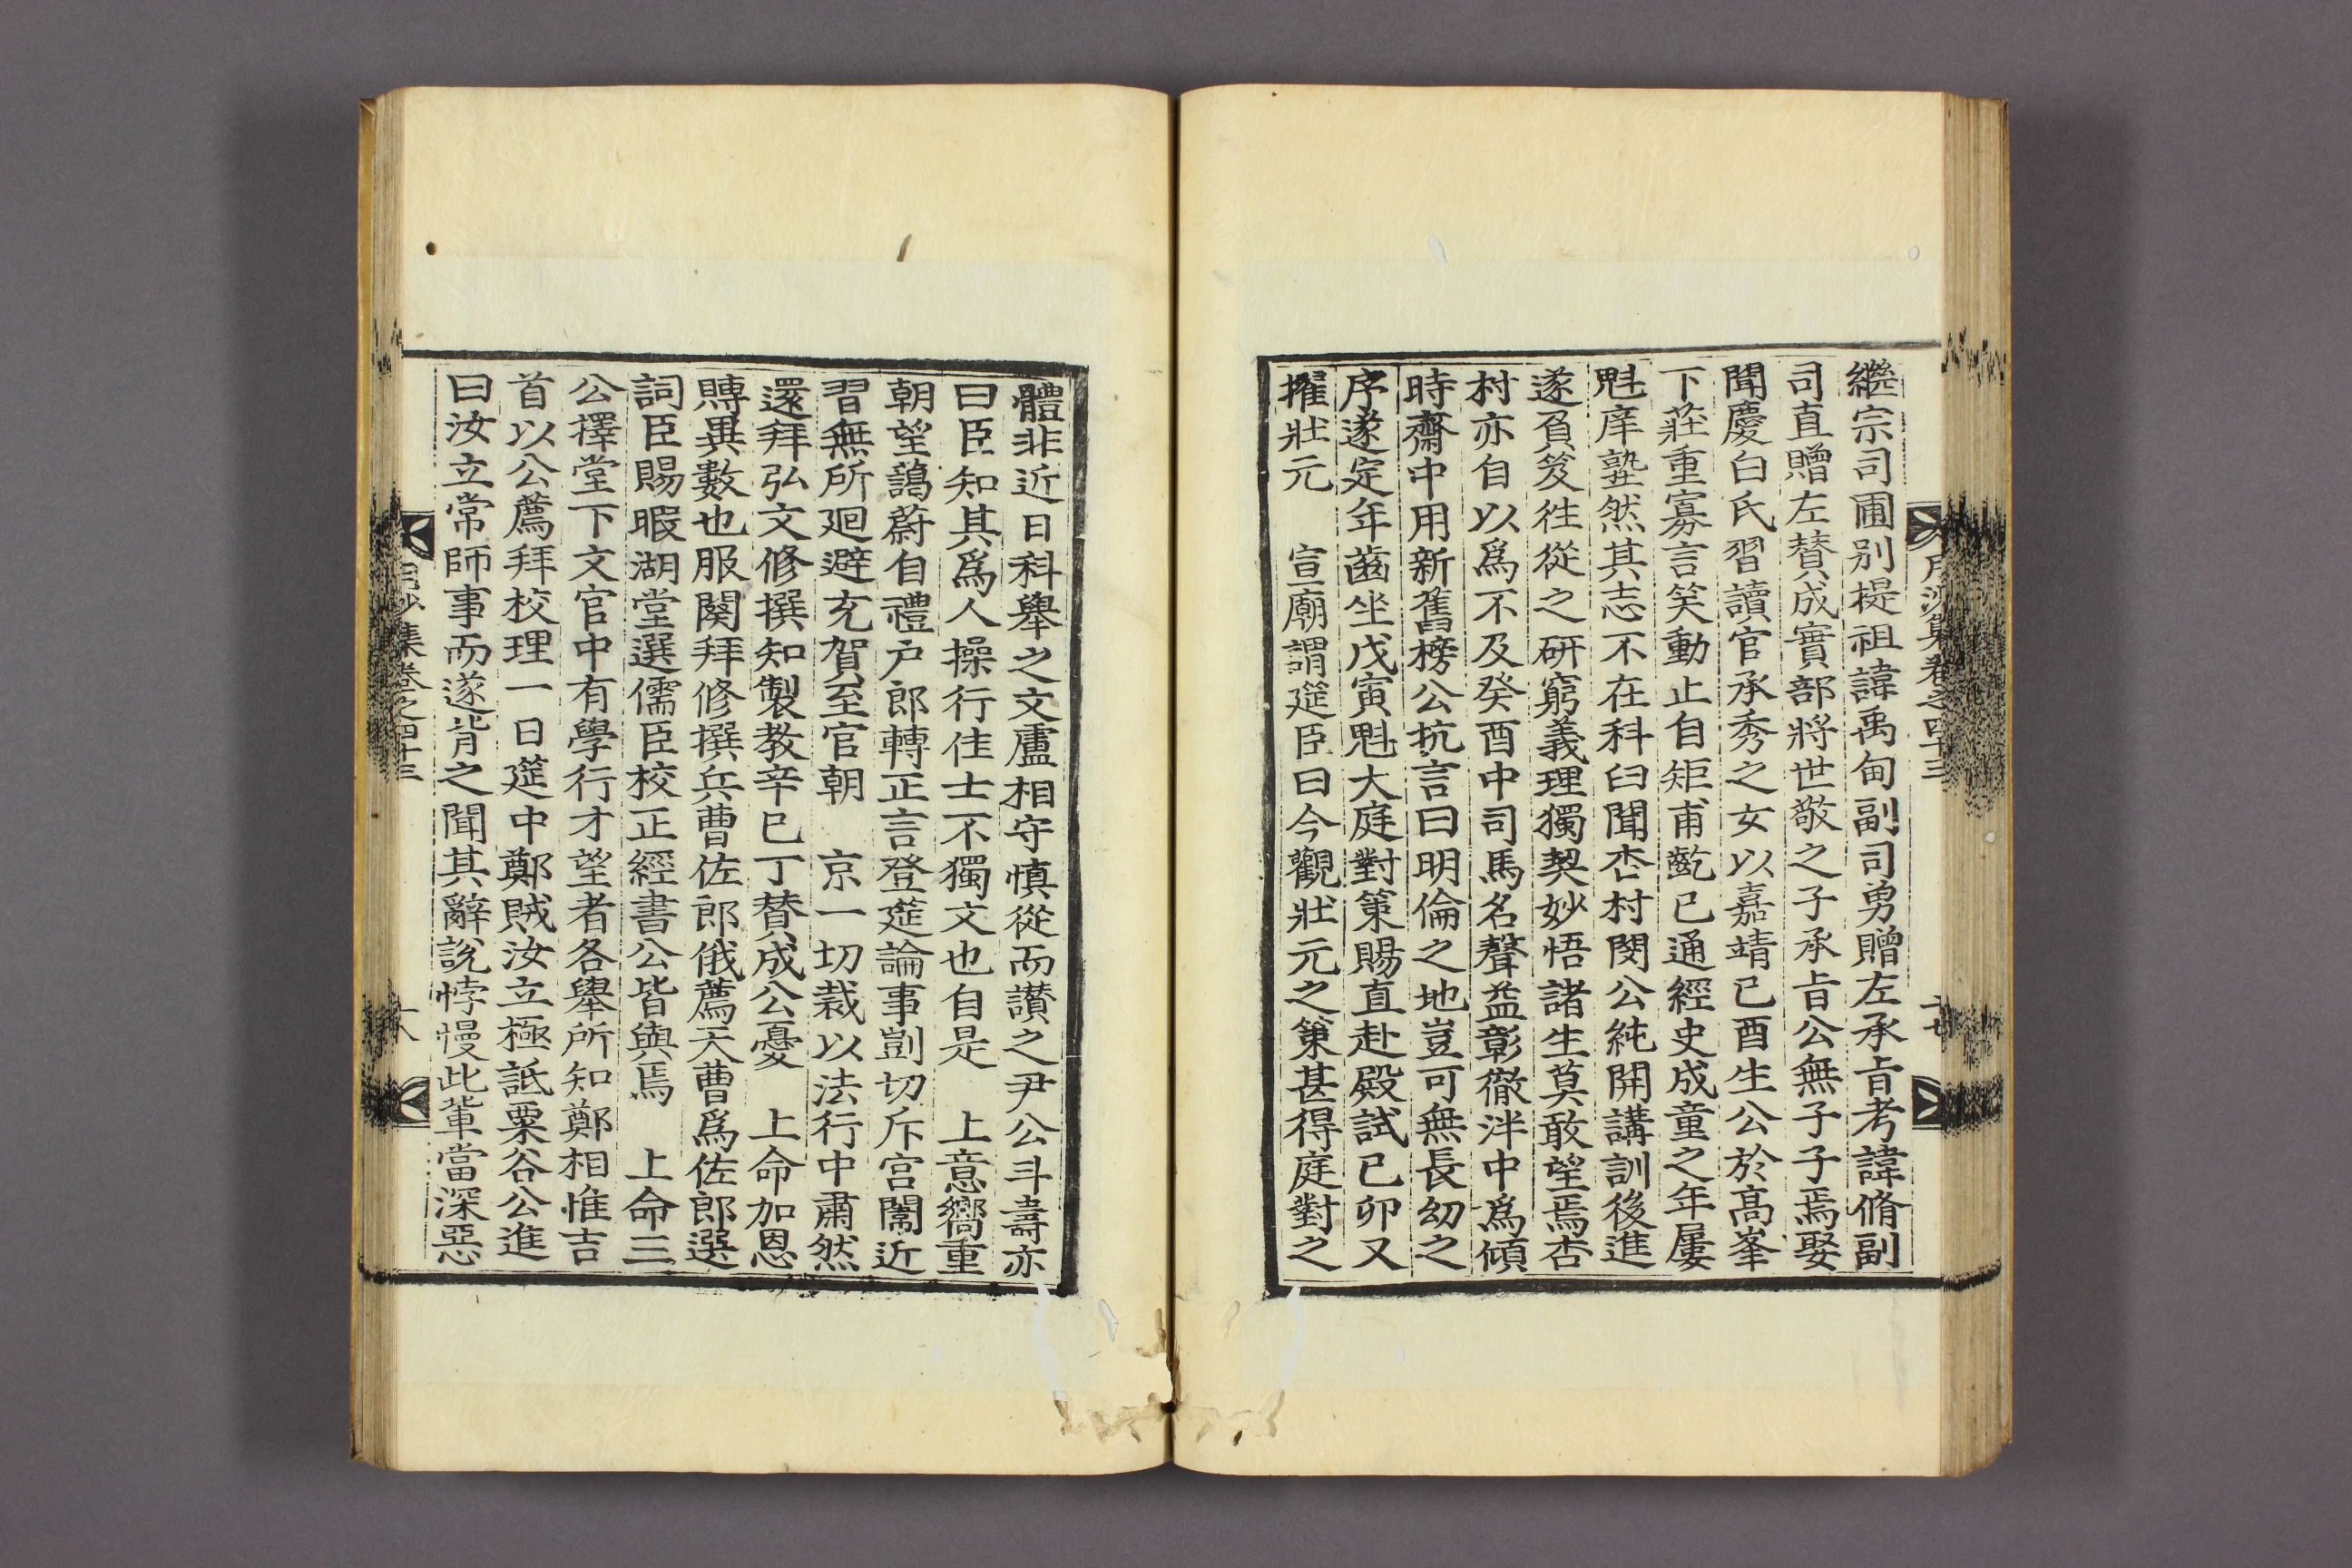 繼宗司圃別提祖諱禹甸副司勇贈左承旨考諱脩副
司直贈左賛成實部將世敬之子承旨公無子子焉娶
聞慶白氏習讀官承秀之女以嘉靖己酉生公於高峯
下莊重寡言笑動止自矩甫齔已通經史成童之年屢
魁庠塾然其志不在科臼聞杏村閔公純開講訓後進
遂負笈徃從之研窮義理獨契妙悟諸生莫敢望焉杏
村亦自以爲不及癸酉中司馬名聲益彰徹泮中爲傾
時齋中用新舊榜公抗言曰明倫之地豈可無長幼之
序遂定年齒坐戊寅魁大庭對策賜直赴殿試己卯又
擢壯元　宣廟謂筵臣曰今觀壯元之策甚得庭對之
月沙集卷之四十三
十七
體非近日科舉之文盧相守愼從而讃之尹公斗壽亦
曰臣知其爲人操行佳士不獨文也自是　上意嚮重
朝望藹蔚自禮户郎轉正言登筵論事剴切斥宮闈近
習無所廻避充賀至官朝　京一切裁以法行中肅然
還拜弘文修撰知製教辛巳丁賛成公憂　上命加恩
賻異數也服闋拜修撰兵曹佐郎俄薦天曹爲佐郎選
詞臣賜暇湖堂選儒臣校正經書公皆與焉　上命三
公擇堂下文官中有學行才望者各舉所知鄭相惟吉
首以公薦拜校理一日筵中鄭賊汝立極詆栗谷公進
曰汝立常師事而遂背之聞其辭說悖慢此輩當深惡
月沙集卷之四十三
十八